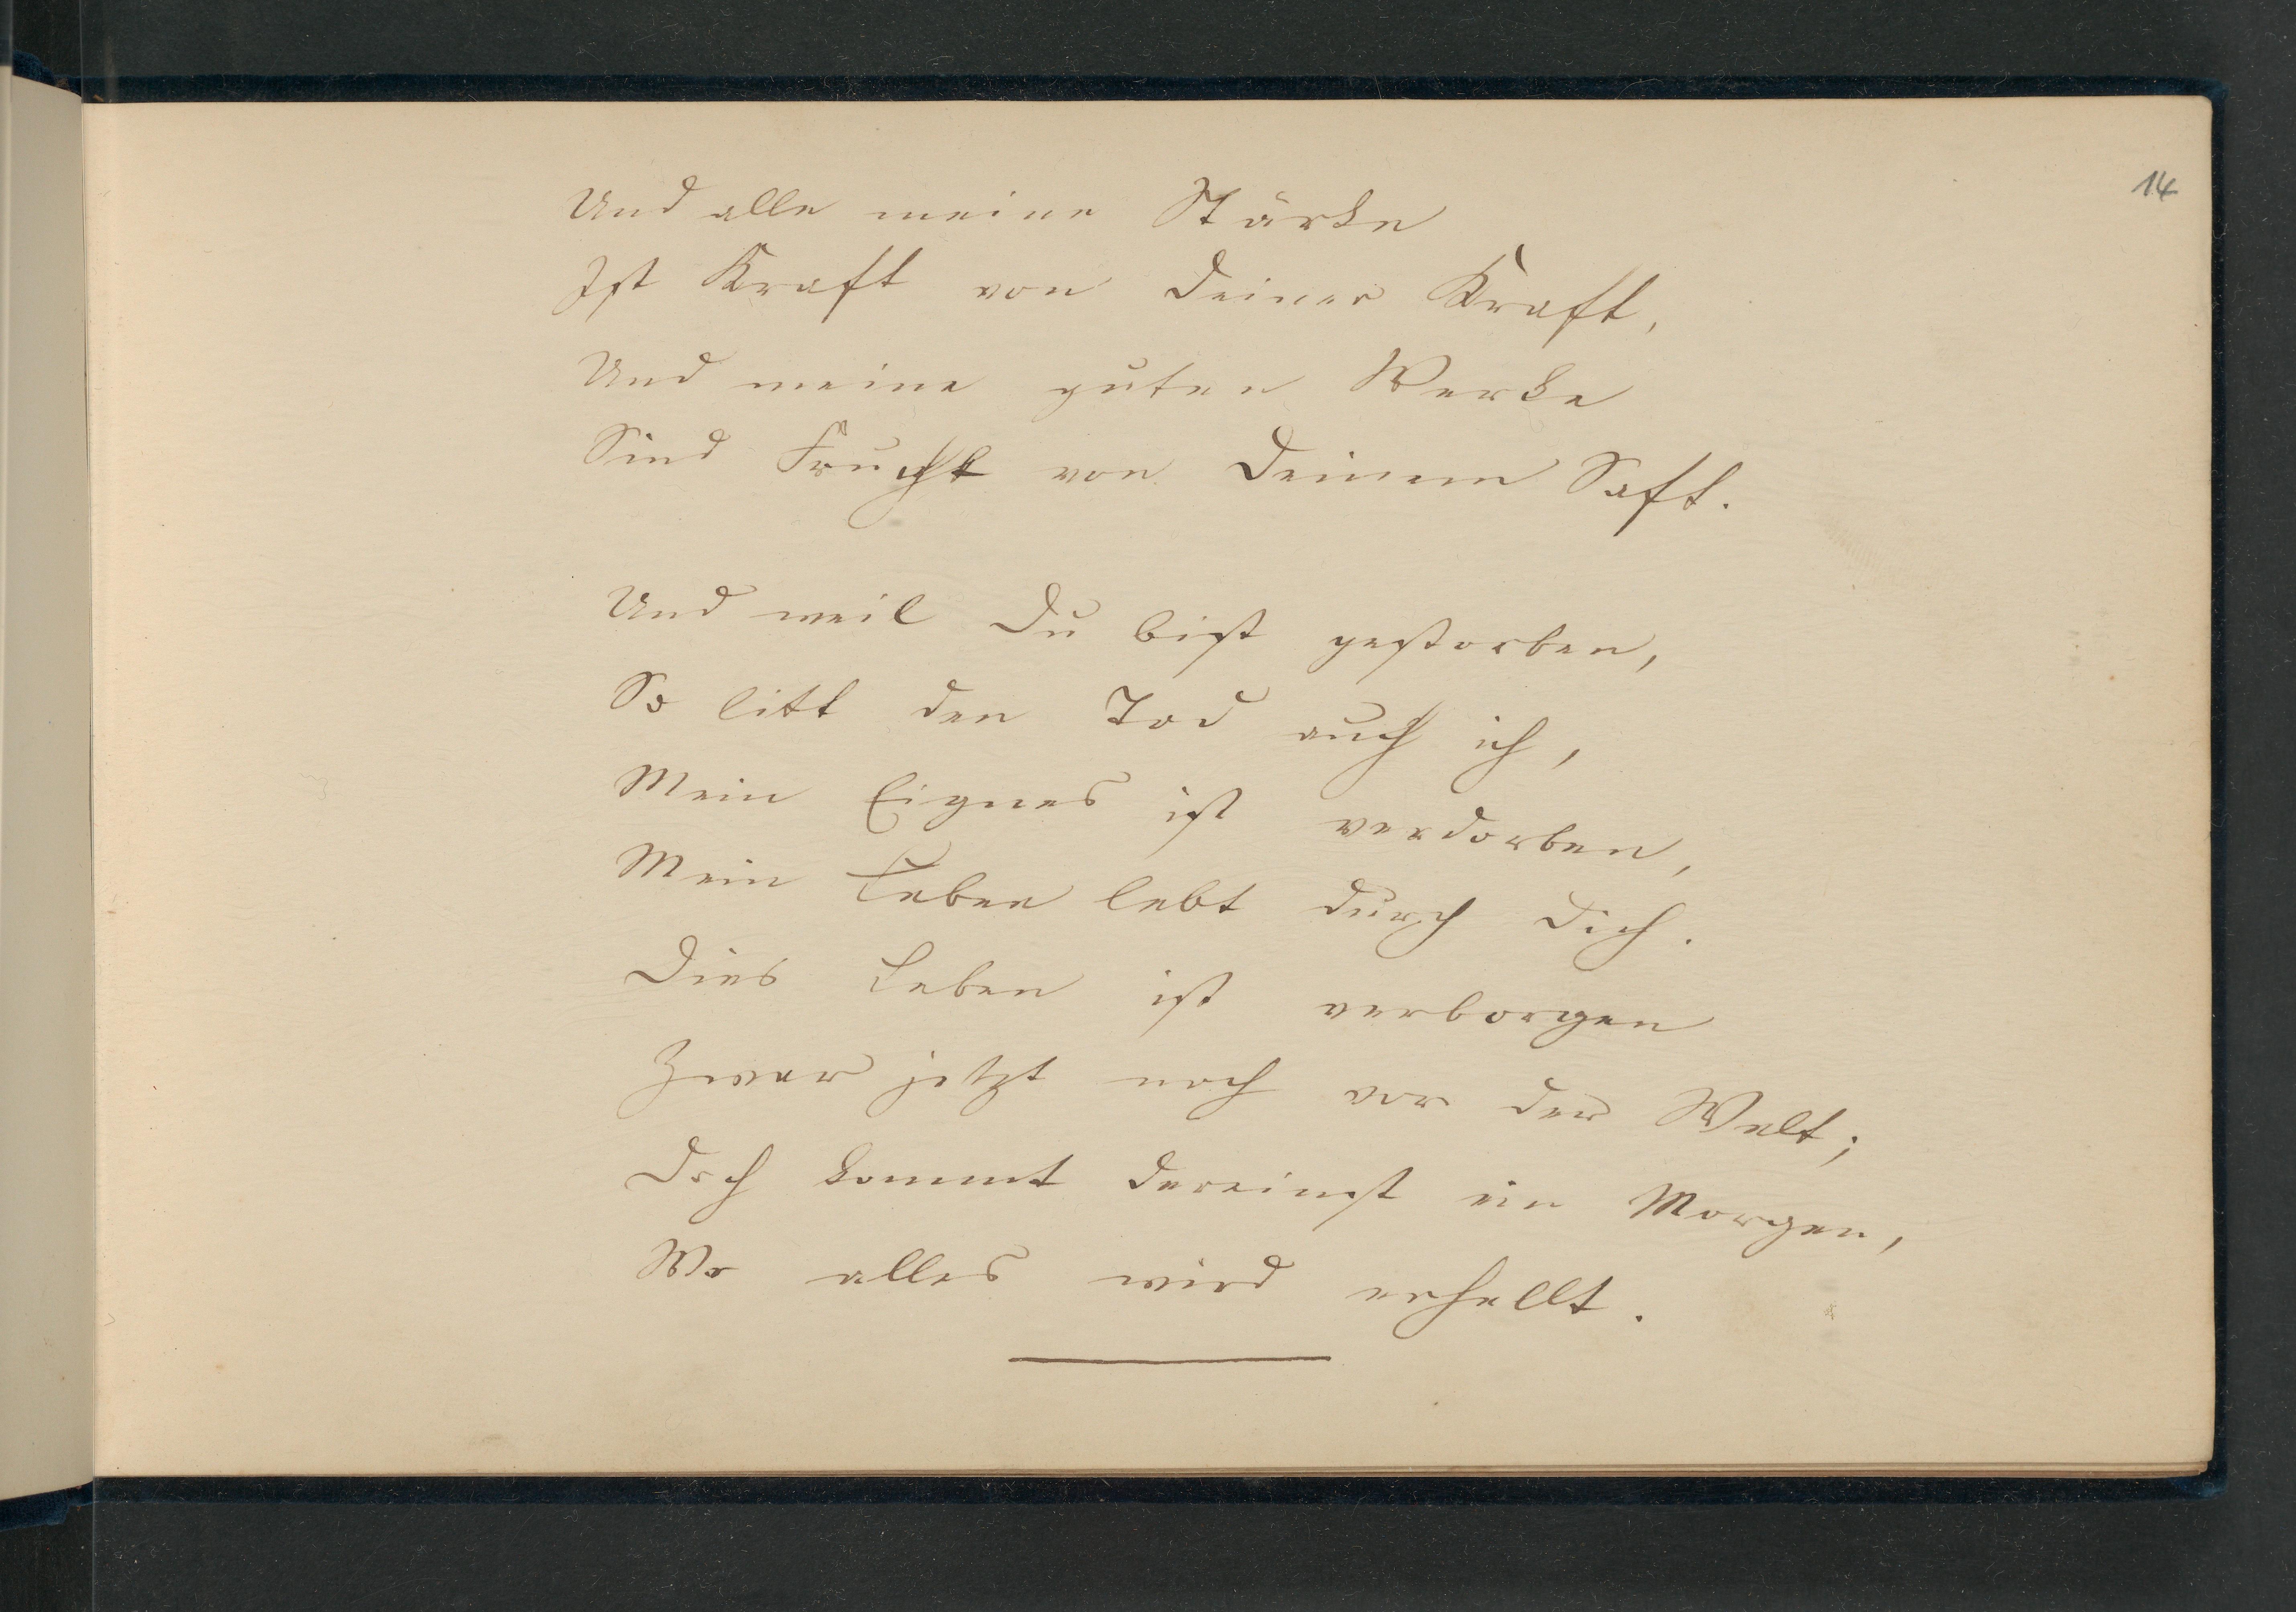 14
Und alle meine Stärke
Ist Kraft von Deiner Kraft,
Und meine guten Werke
Sind Frucht von Deinem Saft.
Und weil Du bist gestorben,
So litt den Tod auch ich,
Mein Eignes ist verdorben,
Mein Leben lebt durch Dich.
Dies Leben ist verborgen
Zwar jetzt noch vor der Welt;
Doch kommt dereinst ein Morgen,
Wo alles wird erhellt.